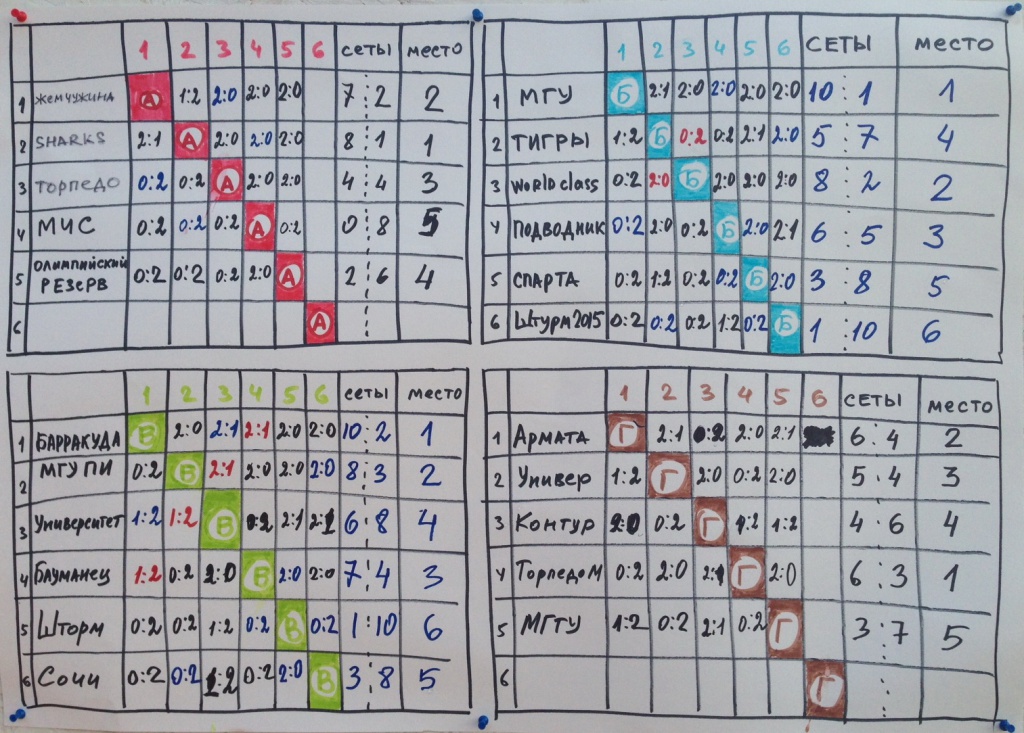 1 2 3 4 5 6 сеты место
1 Жемчужина А 1:2 2:0 2:0 2:0 7:2 2
2 SHARKS 2:1 А 2:0 2:0 2:0 8:1 1
3 Торпедо 0:2 0:2 А 2:0 2:0 4:4 3
4 МЧС 0:2 0:2 0:2 А 0:2 0:8 5
5 ОЛИМПИЙСКИЙ
РЕЗЕРВ 0:2 0:2 0:2 2:0 А 2:6 4
6 А
1 2 3 4 5 6 СЕТЫ МЕСТО
1 МГУ Б 2:1 2:0 2:0 2:0 2:0 10:1 1
2 ТИГРЫ 1:2 Б 0:2 0:2 2:1 2:0 5:7 4
3 World class 0:2 2:0 Б 2:0 2:0 2:0 8:2 2
4 Подводник 0:2 2:0 0:2 Б 2:0 2:1 6:5 3
5 СПАРТА 0:2 1:2 0:2 0:2 Б 2:0 3:8 5
6 Штурм 2015 0:2 0:2 0:2 1:2 0:2 Б 1:10 6
1 2 3 4 5 6 сеты место
1 БАРРАКУДА В 2:0 2:1 2:1 2:0 2:0 10:2 1
2 МГУПИ 0:2 В 2:1 2:0 2:0 2:0 8:3 2
3 Университет 1:2 1:2 В 0:2 2:1 2:1 6:8 4
4 Блуманец 1:2 0:2 2:0 В 2:0 2:0 7:4 3
5 Шторм 0:2 0:2 1:2 0:2 В 0:2 1:10 6
6 Сочи 0:2 0:2 1:2 0:2 2:0 В 3:8 5
1 2 3 4 5 6 СЕТЫ МЕСТО
1 Армата Г 2:1 0:2 2:0 2:1 6:4 2
2 Универ 1:2 Г 2:0 0:2 2:0 5:4 3
3 Контур 2:0 0:2 Г 1:2 1:2 4:6 4
4 Торпедо М 0:2 2:0 2:1 Г 2:0 6:3 1
5 МГТУ 1:2 0:2 2:1 0:2 Г 3:7 5
6 Г